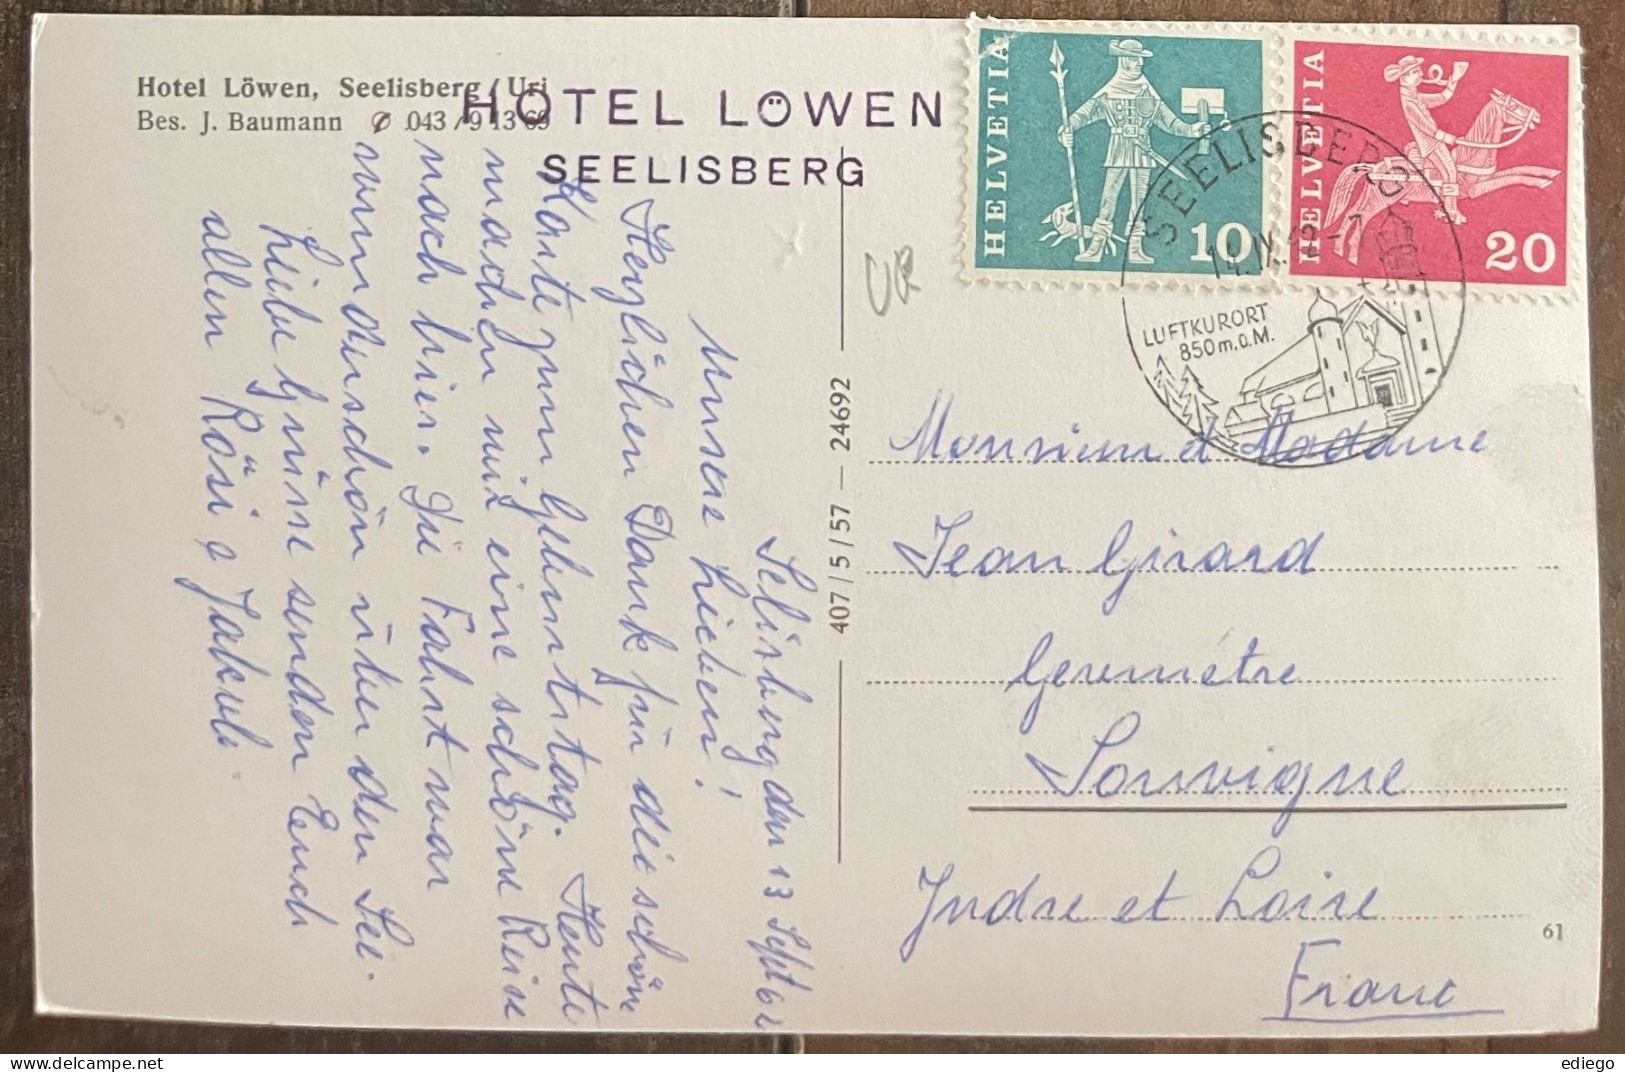 Hotel Löwen, Seelisberg / Uri
Bes. J. Baumann ✆ 043 / 9 13 69
HOTEL LÖWEN
SEELISBERG
Selisberg den 13 Sept 62
Unsere Lieben!
Herzlichen Dank für die schöne
Karte zum Geburtstag. Heute
machen wir eine schöne Reise
nach hier. Die Fahrt war
wunderschön über den See.
Liebe Grüsse senden Euch
allen Rösi & Jakob.
407 / 5 / 57 — 24692
UR
HELVETIA
10
HELVETIA
20
SEELISBERG
LUFTKURORT
850 m.ü.M.
Monsieur et Madame
Jean Girard
Geremétre
Souvigne
Indre et Loire
France
61
ediego